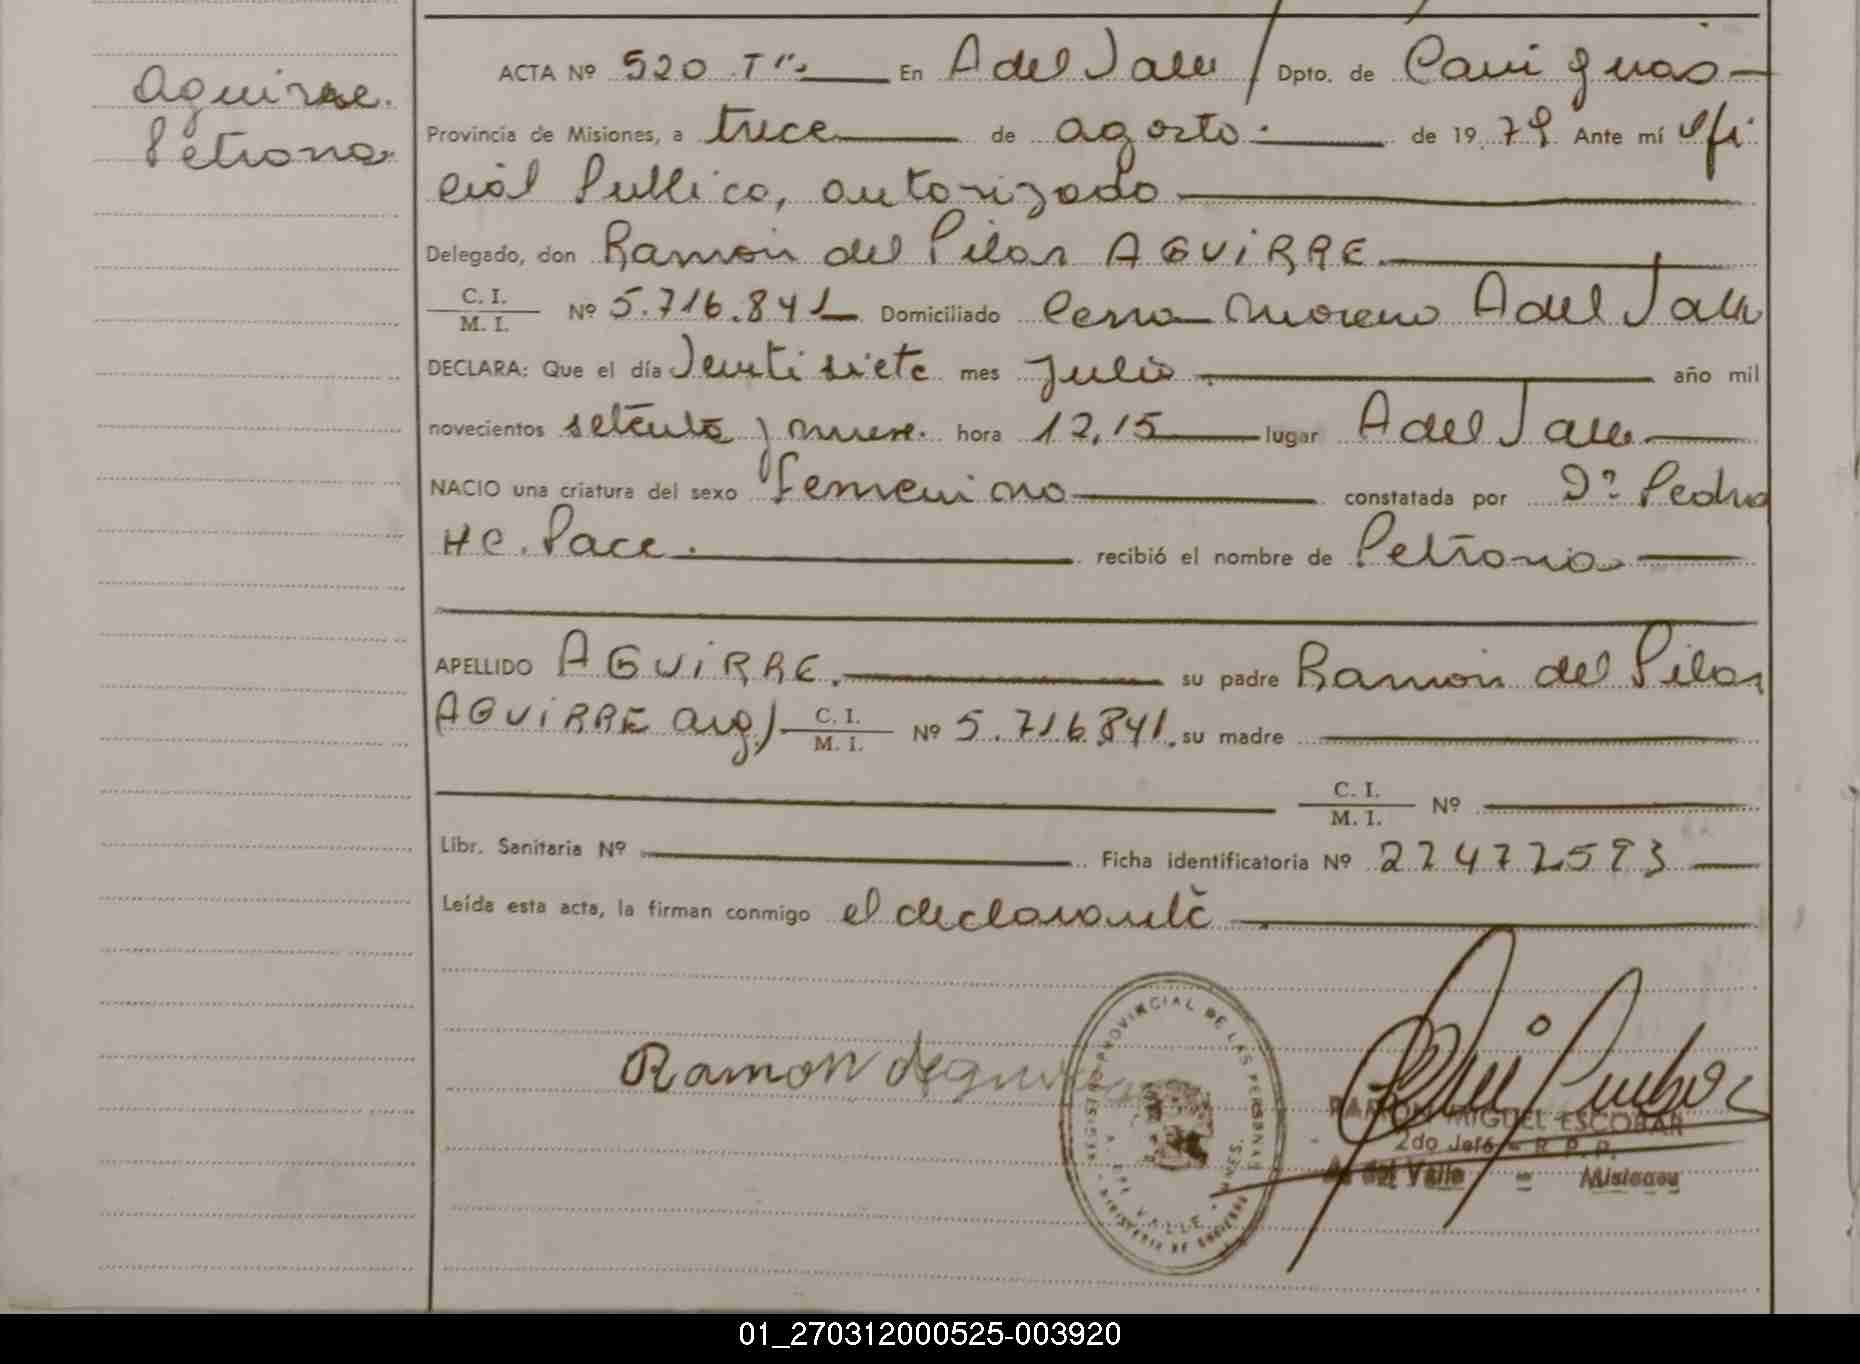 Aguirre.
Petrona
ACTA Nº 520 Tº En A del Valle / Dpto. de Cainguás
Provincia de Misiones, a trece de agosto de 1979 Ante mí Ofi-
cial Publico, autorizado
Delegado, don Ramon del Pilar AGUIRRE
C. I.
M. I. Nº 5.716.841 Domiciliado Cerro Moreno A del Valle
DECLARA: Que el día Veintisiete mes Julio año mil
novecientos setenta y nueve. hora 12,15 lugar A del Valle
NACIO una criatura del sexo femenino constatada por Dr Pedro
HC. Pace. recibió el nombre de Petrona
APELLIDO AGUIRRE. su padre Ramon del Pilar
AGUIRRE arg/ C. I.
M. I. Nº 5.716.841. su madre
C. I.
M. I. Nº
Libr. Sanitaria Nº Ficha identificatoria Nº 27472593
Leída esta acta, la firman conmigo el declarante
Ramon Aguirre
REGISTRO PROVINCIAL DE LAS PERSONAS
A. DEL VALLE - MNES.
MINISTERIO DE GOBIERNO
RAMON MIGUEL ESCOBAR
2do Jefe - R. P. P.
A. del Valle - Misiones
01_270312000525-003920